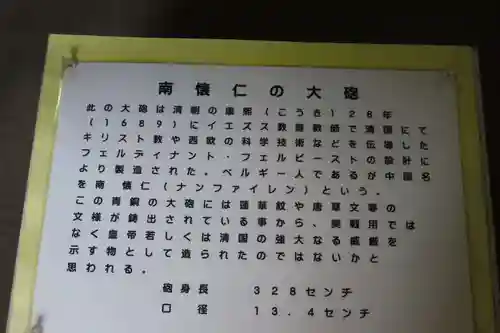 南懐仁の大砲
此の大砲は清朝の康熙(こうき)28年
(1689)にイエズス教宣教師で清国にて
キリスト教や西欧の科学技術などを伝導した
フェルディナント・フェルビーストの設計に
より製造された。ベルギー人であるが中国名
を南 懐仁(ナンファイレン)という。
この青銅の大砲には蓮華紋や唐草文等の
文様が鋳出されている事から、実戦用では
なく皇帝若しくは清国の強大なる威厳を
示す物として造られたのではないかと
思われる。
砲身長 328センチ
口 径 13.4センチ